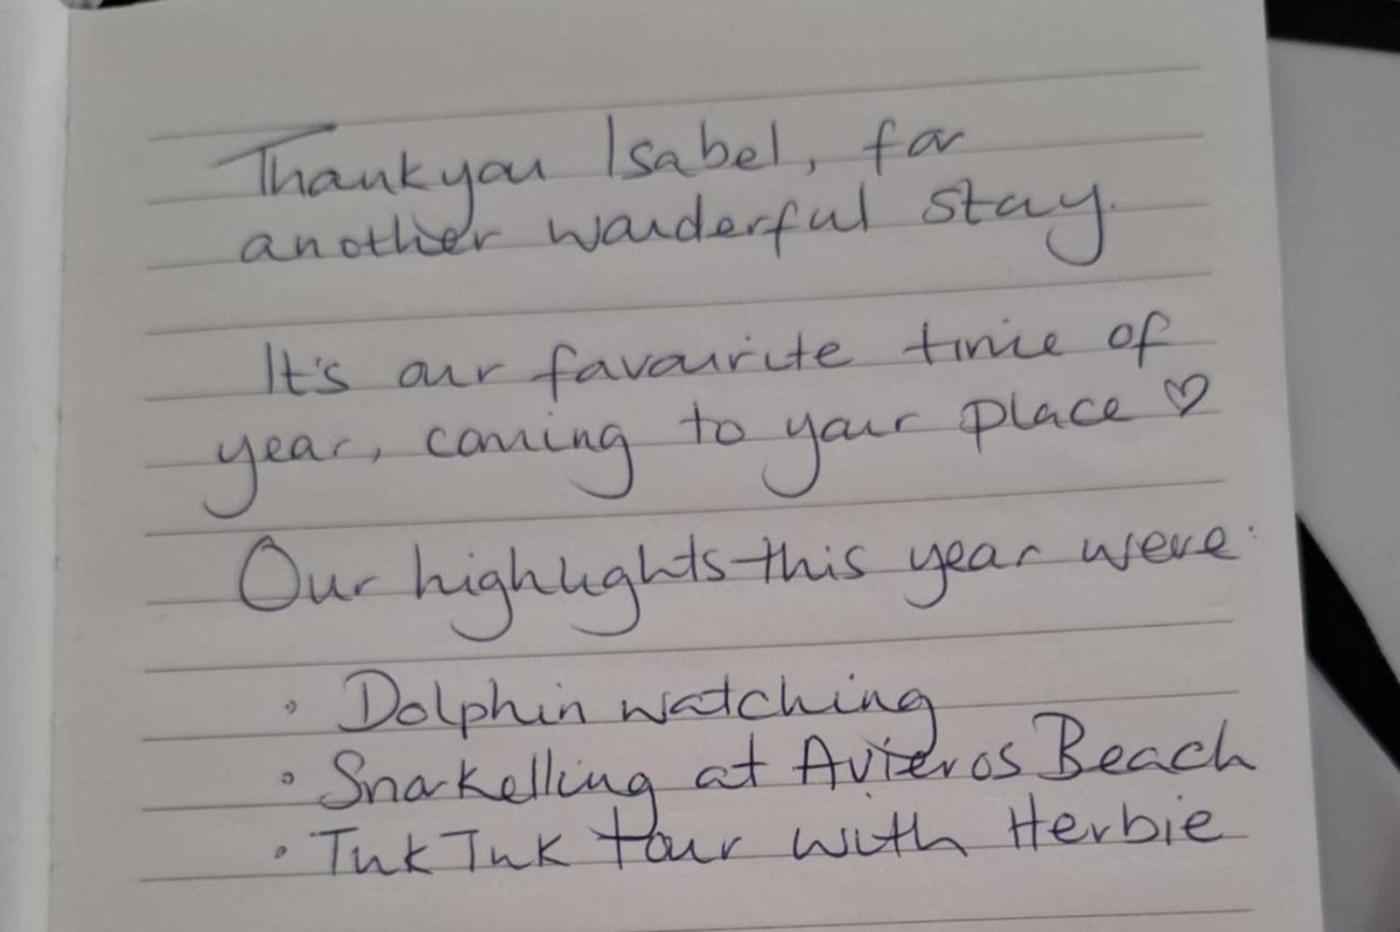 Thankyou Isabel, for
another wonderful stay.
It's our favourite time of
year, coming to your place ♡
Our highlights this year were:
• Dolphin watching
• Snorkelling at Avieros Beach
• Tuk Tuk tour with Herbie